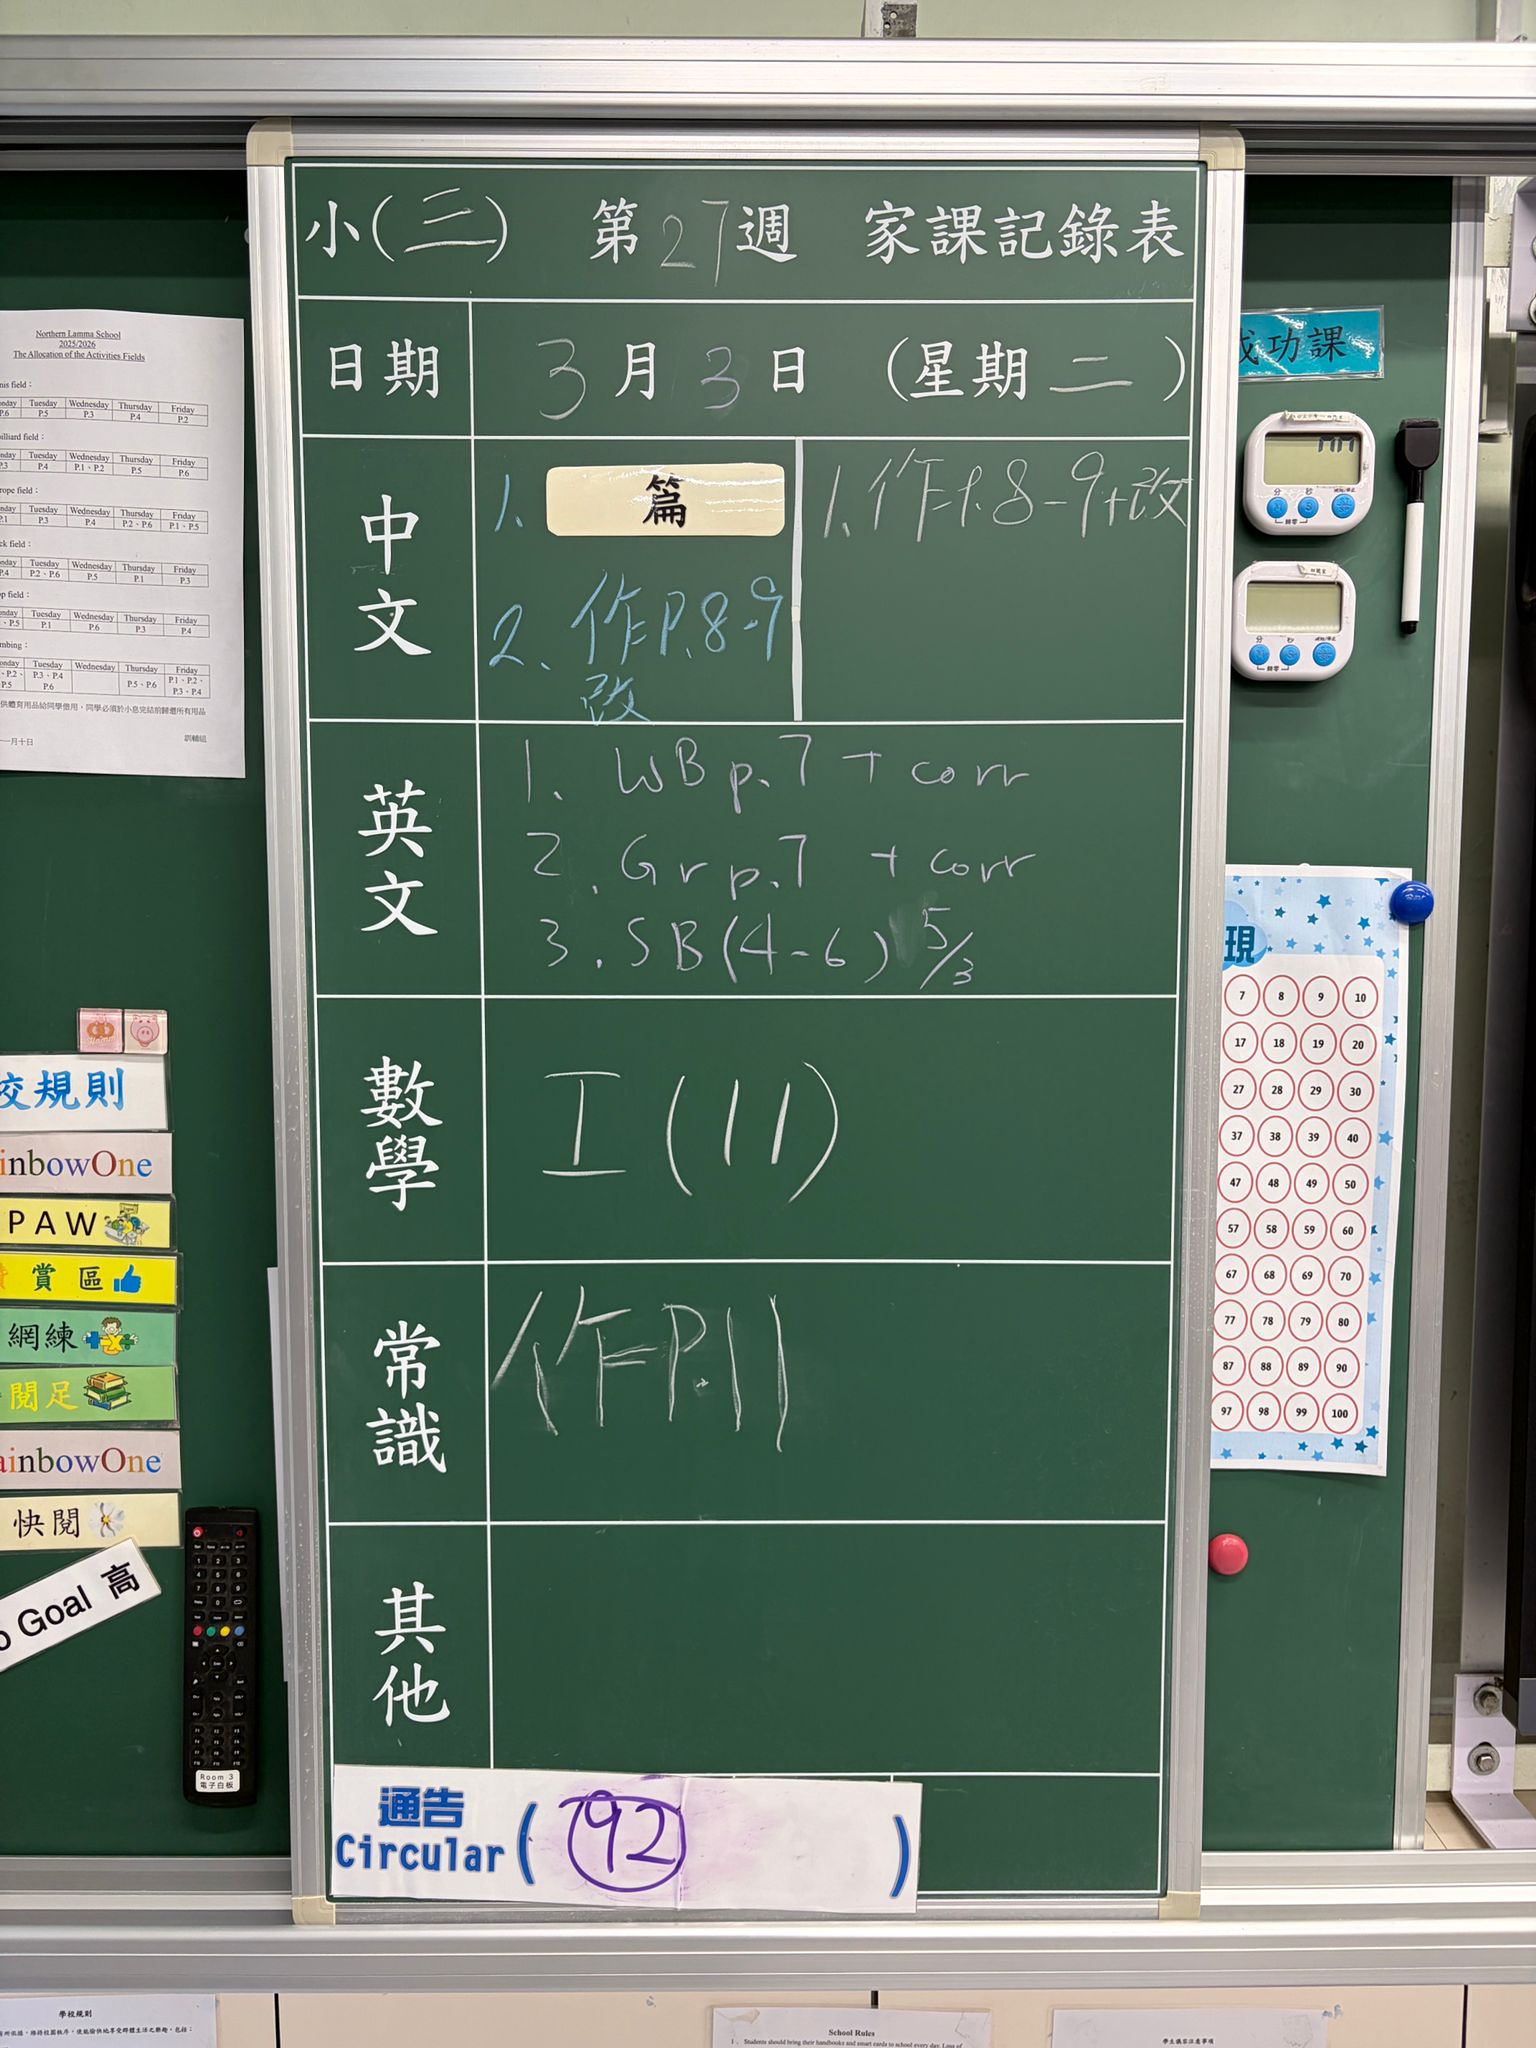 小(三) 第27週 家課記錄表
日期 3月3日 (星期二)
中文
1. 篇
2. 作P.8-9
改
1. 作P.8-9+改
英文
1. WB p.7 + corr
2. Gr p.7 + corr
3. SB (4-6) 5/3
數學
I (11)
常識
作P.11
其他
通告
Circular ( 92 )
Northern Lamma School
2025/2026
The Allocation of the Activities Fields
nis field：
onday Tuesday Wednesday Thursday Friday
P.6 P.5 P.3 P.4 P.2
illiard field：
onday Tuesday Wednesday Thursday Friday
P.3 P.4 P.1、P.2 P.5 P.6
rope field：
onday Tuesday Wednesday Thursday Friday
P.1 P.3 P.4 P.2、P.6 P.1、P.5
ck field：
onday Tuesday Wednesday Thursday Friday
P.4 P.2、P.6 P.5 P.1 P.3
op field：
onday Tuesday Wednesday Thursday Friday
、P.5 P.1 P.6 P.3 P.4
mbing：
onday Tuesday Wednesday Thursday Friday
、P.2、 P.3、P.4 P.5、P.6 P.1、P.2、
P.5 P.6 P.3、P.4
供體育用品給同學借用，同學必須於小息完結前歸還所有用品
一月十日
訓輔組
校規則
inbowOne
PAW
賞區
網練
閱足
ainbowOne
快閱
o Goal 高
Room 3
電子白板
成功課
分 秒
M S
歸零
分 秒
M S
歸零
現
7 8 9 10
17 18 19 20
27 28 29 30
37 38 39 40
47 48 49 50
57 58 59 60
67 68 69 70
77 78 79 80
87 88 89 90
97 98 99 100
學校規則
School Rules
1、 Students should bring their handbooks and smart cards to school every day. Loss of
學生儀容注意事項